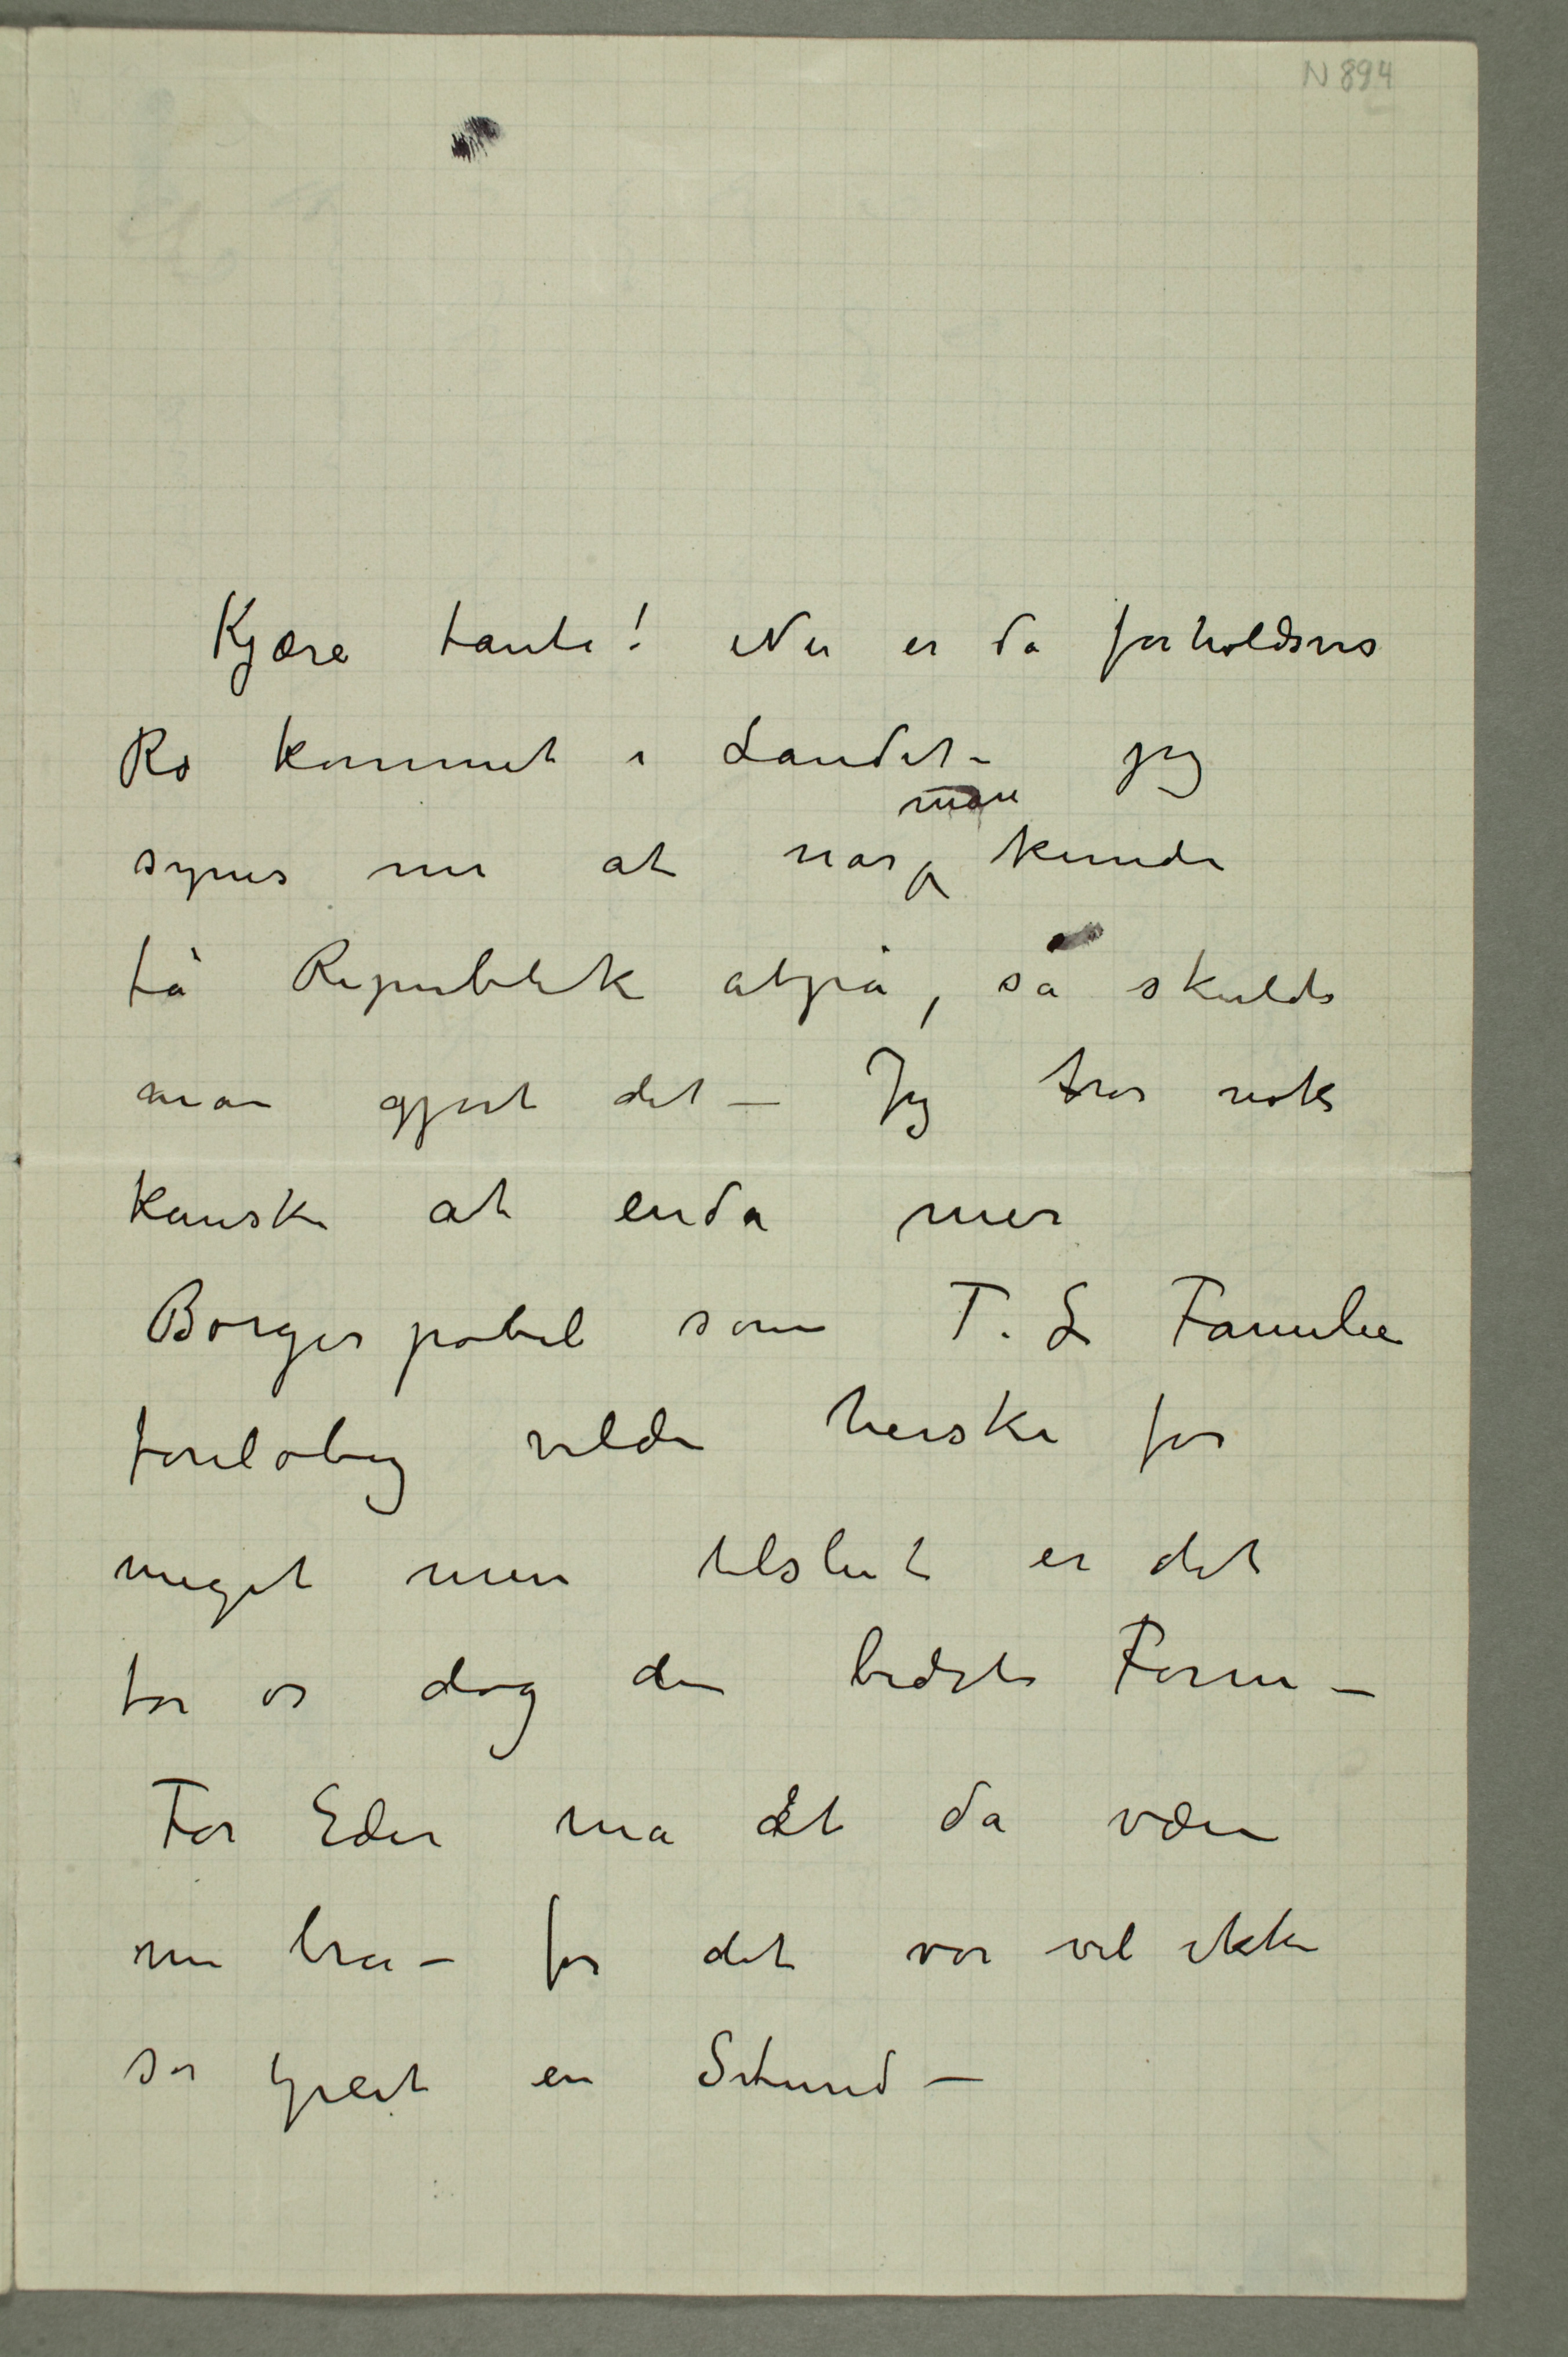 N 894
Kjære tante! Nu er da forholdsvis
Ro kommet i Landet – jeg
man
synes nu at når kunde
få Republik atpå, så skulde
man gjort det – Jeg tror nok
kanske at enda mer
Borgerpøbel som T. L Familie
foreløbig vilde herske for
meget men tilslut er det
for os dog den bedste Form –
For Eder må det da være
nu bra – for det var vel ikke
så greit en Stund –